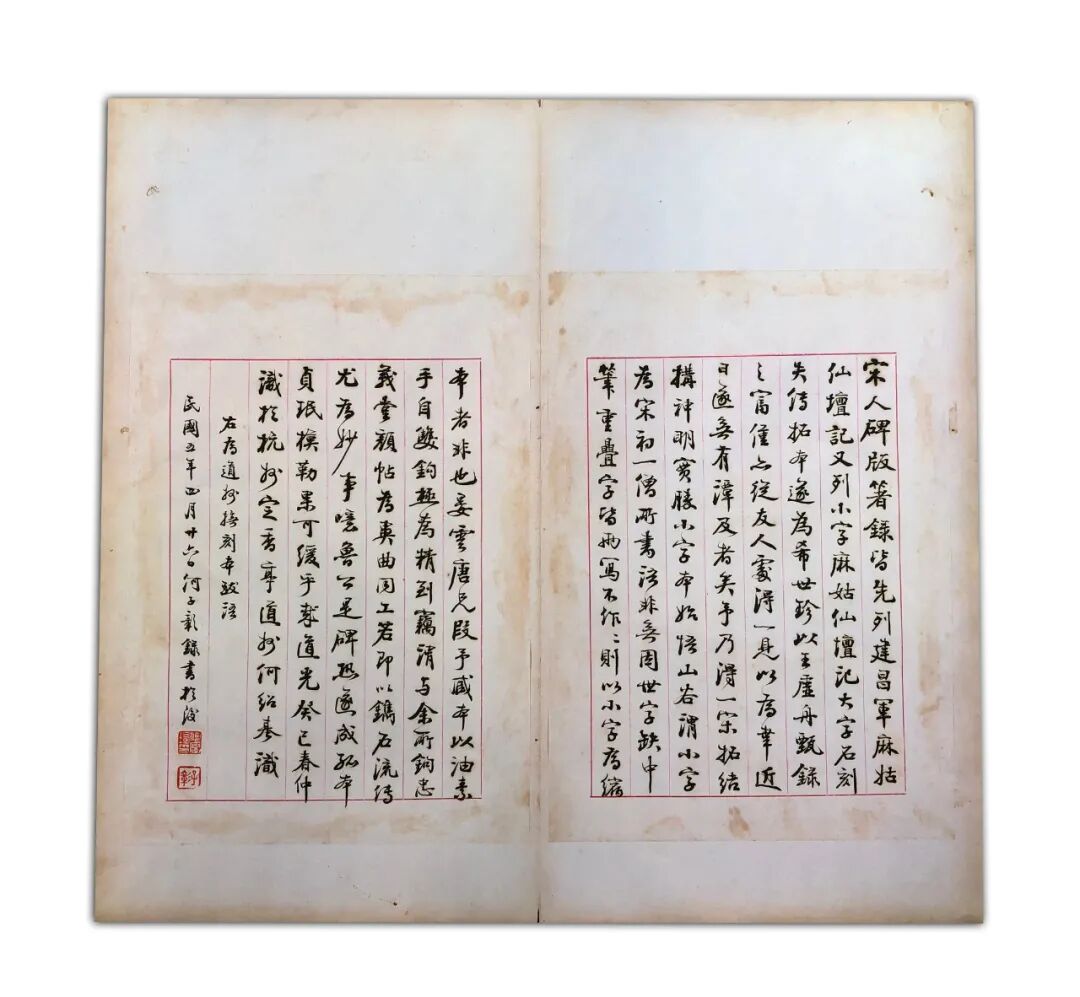 宋人碑版箸錄皆先列建昌軍麻姑
仙壇記又列小字麻姑仙壇記大字石刻
失傳拓本遂為希世珍以王虛舟甄錄
之富僅亦從友人處得一見以為幸近
日遂無有津及者矣予乃得一宋拓結
構神明實勝小字本始悟山谷謂小字
為宋初一僧所書語非無因世字缺中
筆重疊字皆兩寫不作二則以小字為縮
本者非也姜雲唐兄段予藏本以油素
手自雙鉤極為精到竊謂與余所鉤忠
義堂顏帖為異曲同工若即以鐫石流傳
尤為妙事嘻魯公是碑恐遂成孤本
貞珉橅勒果可緩乎哉道光癸巳春仲
識於杭州定香亭道州何紹基識
右為道州 刻本跋語
民國五年四月廿六日何子 錄書於後